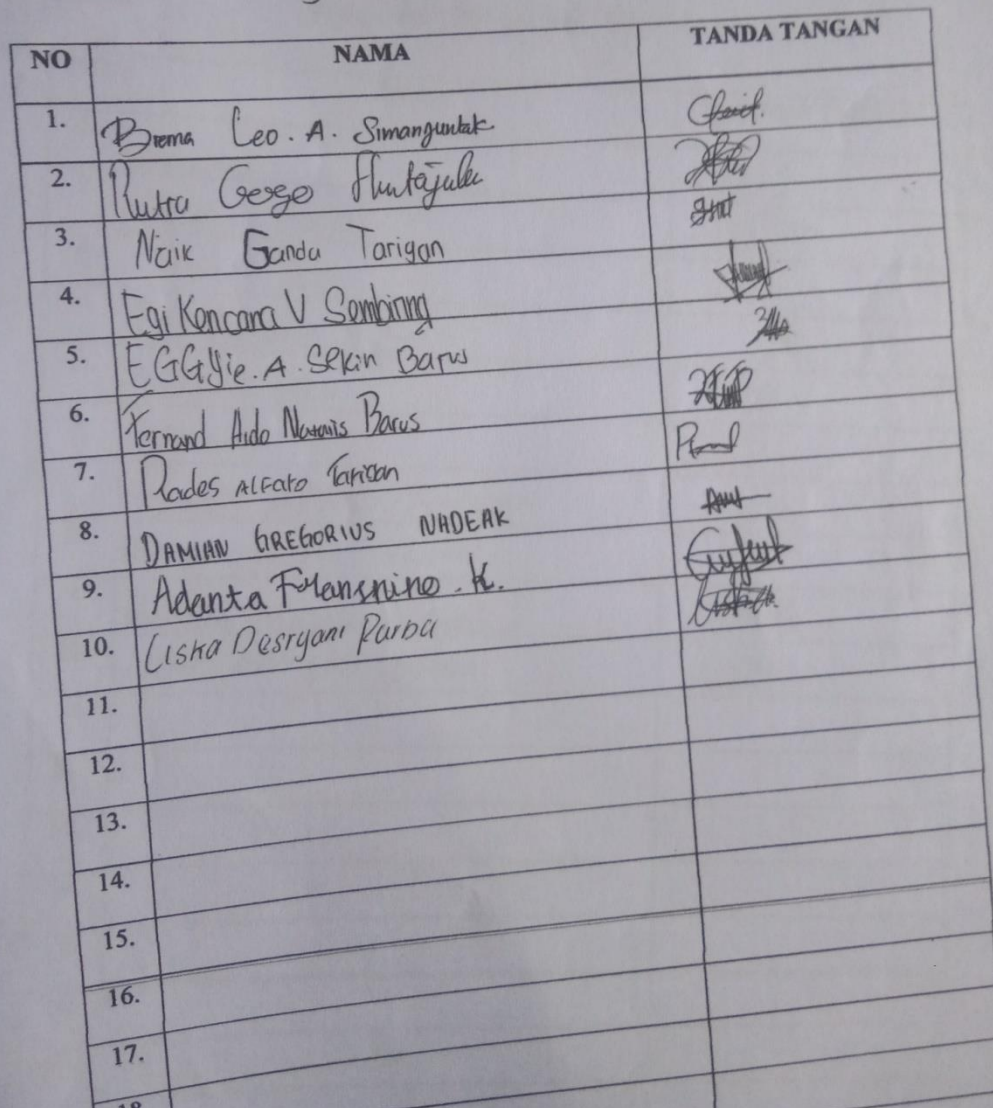 NO NAMA TANDA TANGAN
1. Brema Leo. A. Simanguntak
2. Putra Gergo Hutajulu
3. Naik Ganda Tarigan
4. Egi Kencana V Sembiring
5. EGGyie. A. Sekin Barus
6. Fernand Aldo Barus
7. Rades ALFaro Tarigan
8. DAMIAN GREGORIUS NADEAK
9. Adanta Fransnino. K.
10. Liska Desryani Purba
11.
12.
13.
14.
15.
16.
17.
18